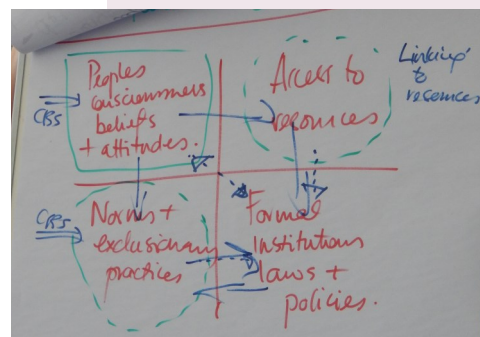 Peoples
consciousness
beliefs
+ attitudes.
CBS
Access to
resources
Linking
to
resources
CBS
Norms +
exclusionary
practices
Formal
institutions
laws +
policies.